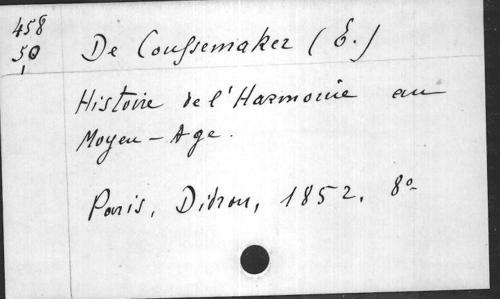 458
50
1
De Coussemaker (E.)
Histoire de l'Harmonie au
Moyen-Age.
Paris, Didron, 1852. 8º